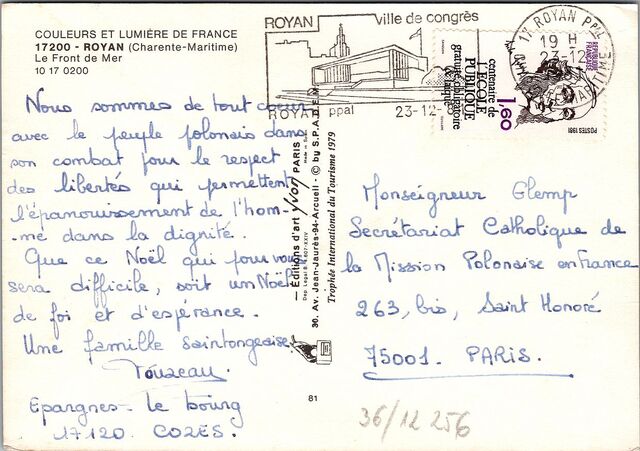 COULEURS ET LUMIÈRE DE FRANCE
17200 - ROYAN (Charente-Maritime)
Le Front de Mer
10 17 0200
ROYAN
ville de congrès
ROYAN ppal
23-12-
17 ROYAN PPAL
19 H
23-12
REPUBLIQUE FRANÇAISE
centenaire de
L'ECOLE
PUBLIQUE
gratuite obligatoire
laïque
1,60
POSTES 1981
Nous sommes de tout coeur
avec le peuple polonais dans
son combat pour le respect
des libertés qui permettent
l'épanouissement de l'hom-
-me dans la dignité.
Que ce Noël qui pour vous
sera difficile, soit un Noël
de foi et d'espérance.
Une famille saintongeaise.
Touzeau.
Epargnes - le bourg
17120. COZES.
— Editions d'art Yvon PARIS —
30. Av. Jean-Jaurès-94-Arcueil - © by S.P.A.D.E.M.
Trophée International du Tourisme 1979
81
Monseigneur Glemp
Secrétariat Catholique de
la Mission Polonaise en France
263, bis, Saint Honoré
75001. PARIS.
36/12 256